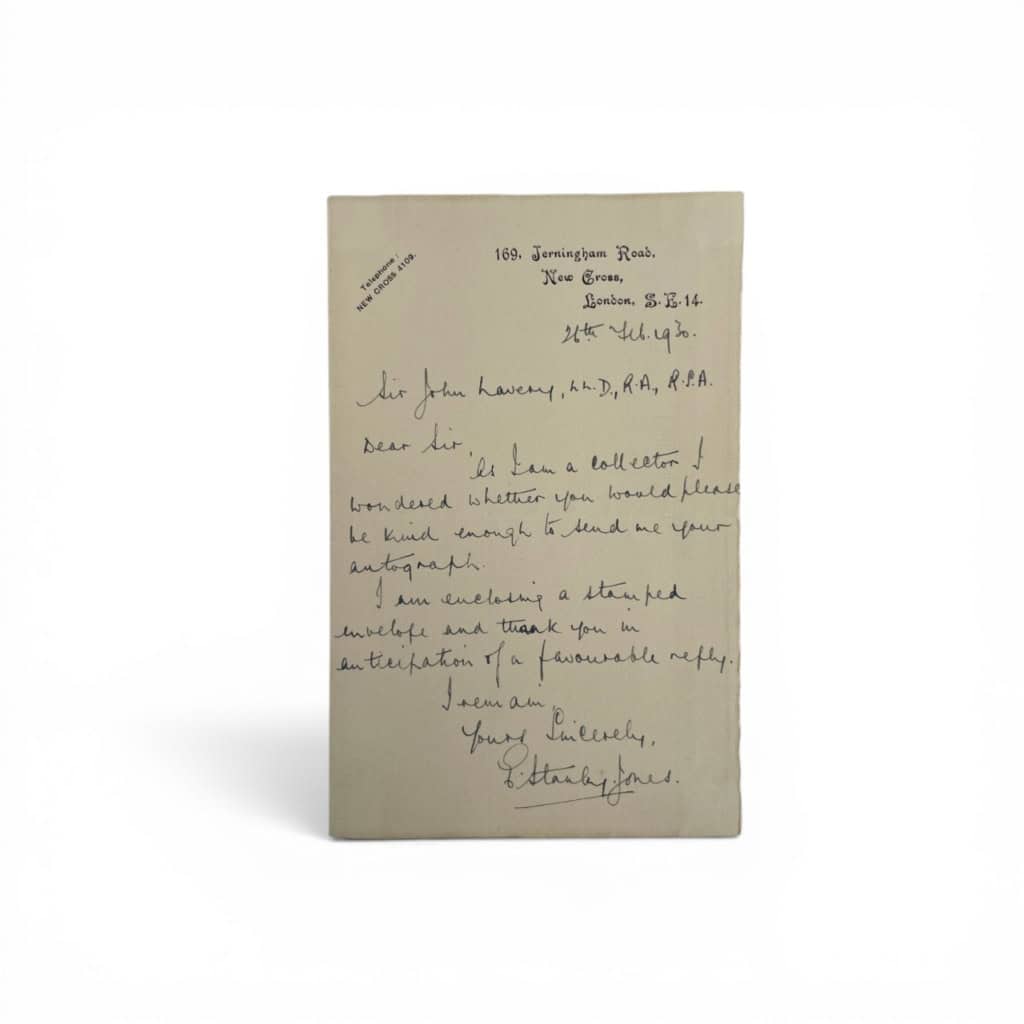 Telephone:
NEW CROSS 4109.
169, Jerningham Road,
New Cross,
London, S.E.14.
26th Feb. 1930.
Sir John Lavery, LL.D., R.A., R.S.A.
Dear Sir,
As I am a collector I
wondered whether you would please
be kind enough to send me your
autograph.
I am enclosing a stamped
envelope and thank you in
anticipation of a favourable reply.
I remain,
Yours Sincerely,
E. Stanley Jones.